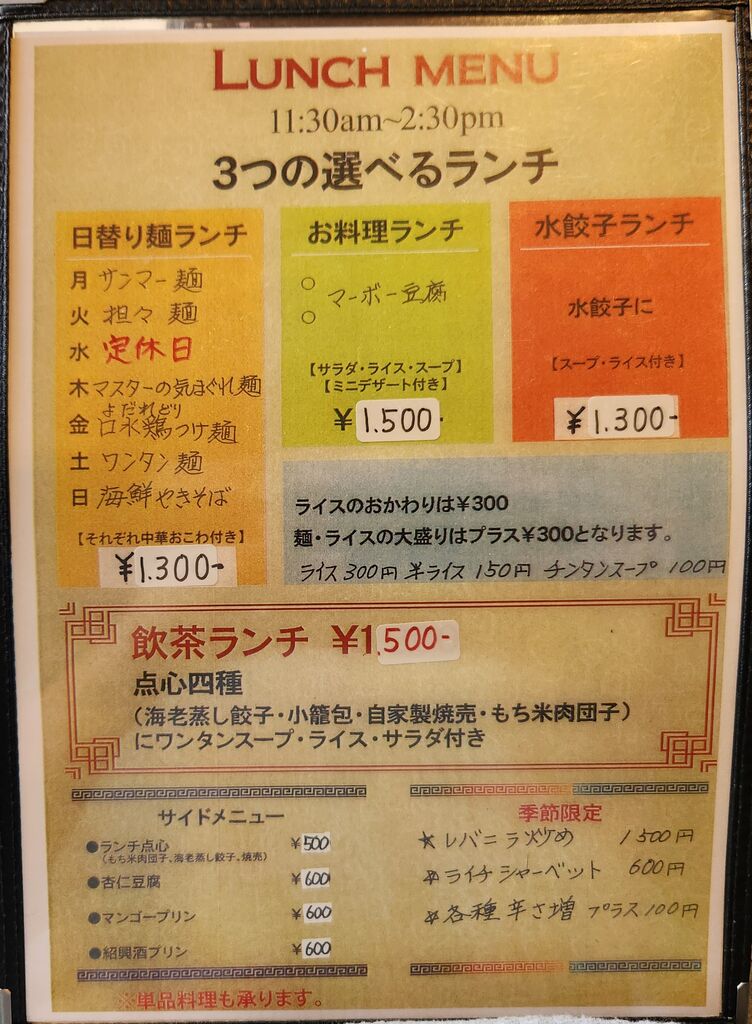 LUNCH MENU
11:30am~2:30pm
3つの選べるランチ
日替り麺ランチ
月 サンマー麺
火 担々麺
水 定休日
木 マスターの気まぐれ麺
よだれどり
金 口水鶏つけ麺
土 ワンタン麺
日 海鮮やきそば
【それぞれ中華おこわ付き】
¥1.300-
お料理ランチ
○ マーボー豆腐
○
【サラダ・ライス・スープ】
【ミニデザート付き】
¥1.500-
水餃子ランチ
水餃子に
【スープ・ライス付き】
¥1.300-
ライスのおかわりは¥300
麺・ライスの大盛りはプラス¥300となります。
ライス300円 半ライス150円 チンタンスープ 100円
飲茶ランチ ¥1,500-
点心四種
(海老蒸し餃子・小籠包・自家製焼売・もち米肉団子)
にワンタンスープ・ライス・サラダ付き
サイドメニュー
●ランチ点心 ¥500
(もち米肉団子、海老蒸し餃子、焼売)
●杏仁豆腐 ¥600
●マンゴープリン ¥600
●紹興酒プリン ¥600
季節限定
★レバニラ炒め 1500円
☆ライチシャーベット 600円
☆各種辛さ増 プラス100円
※単品料理も承ります。